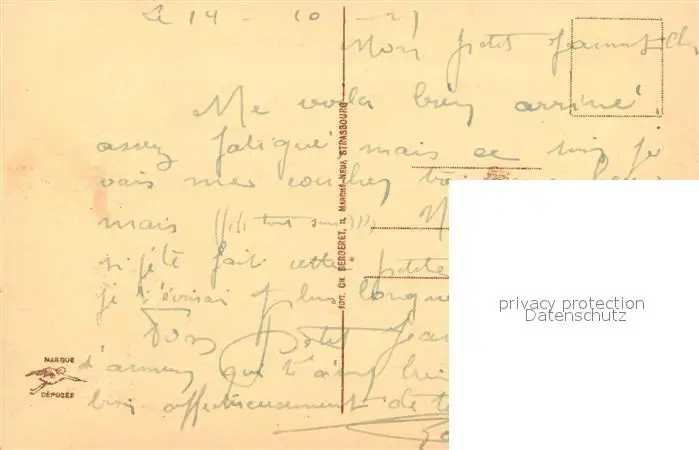 Le 14 - 10 - 21
Mon petit
Me voilà bien arrivé
assez fatigué mais ce soir je
vais me coucher
mais (((( tout seul))))
si je te fais cette petite
je t'écrirai plus longue
Ton petit Jean
d'amour qui t'aime bien
bien affectueusement de
EDIT. CH. BERGERET, 11, MARCHÉ-NEUF, STRASBOURG
MARQUE
DÉPOSÉE
privacy protection
Datenschutz